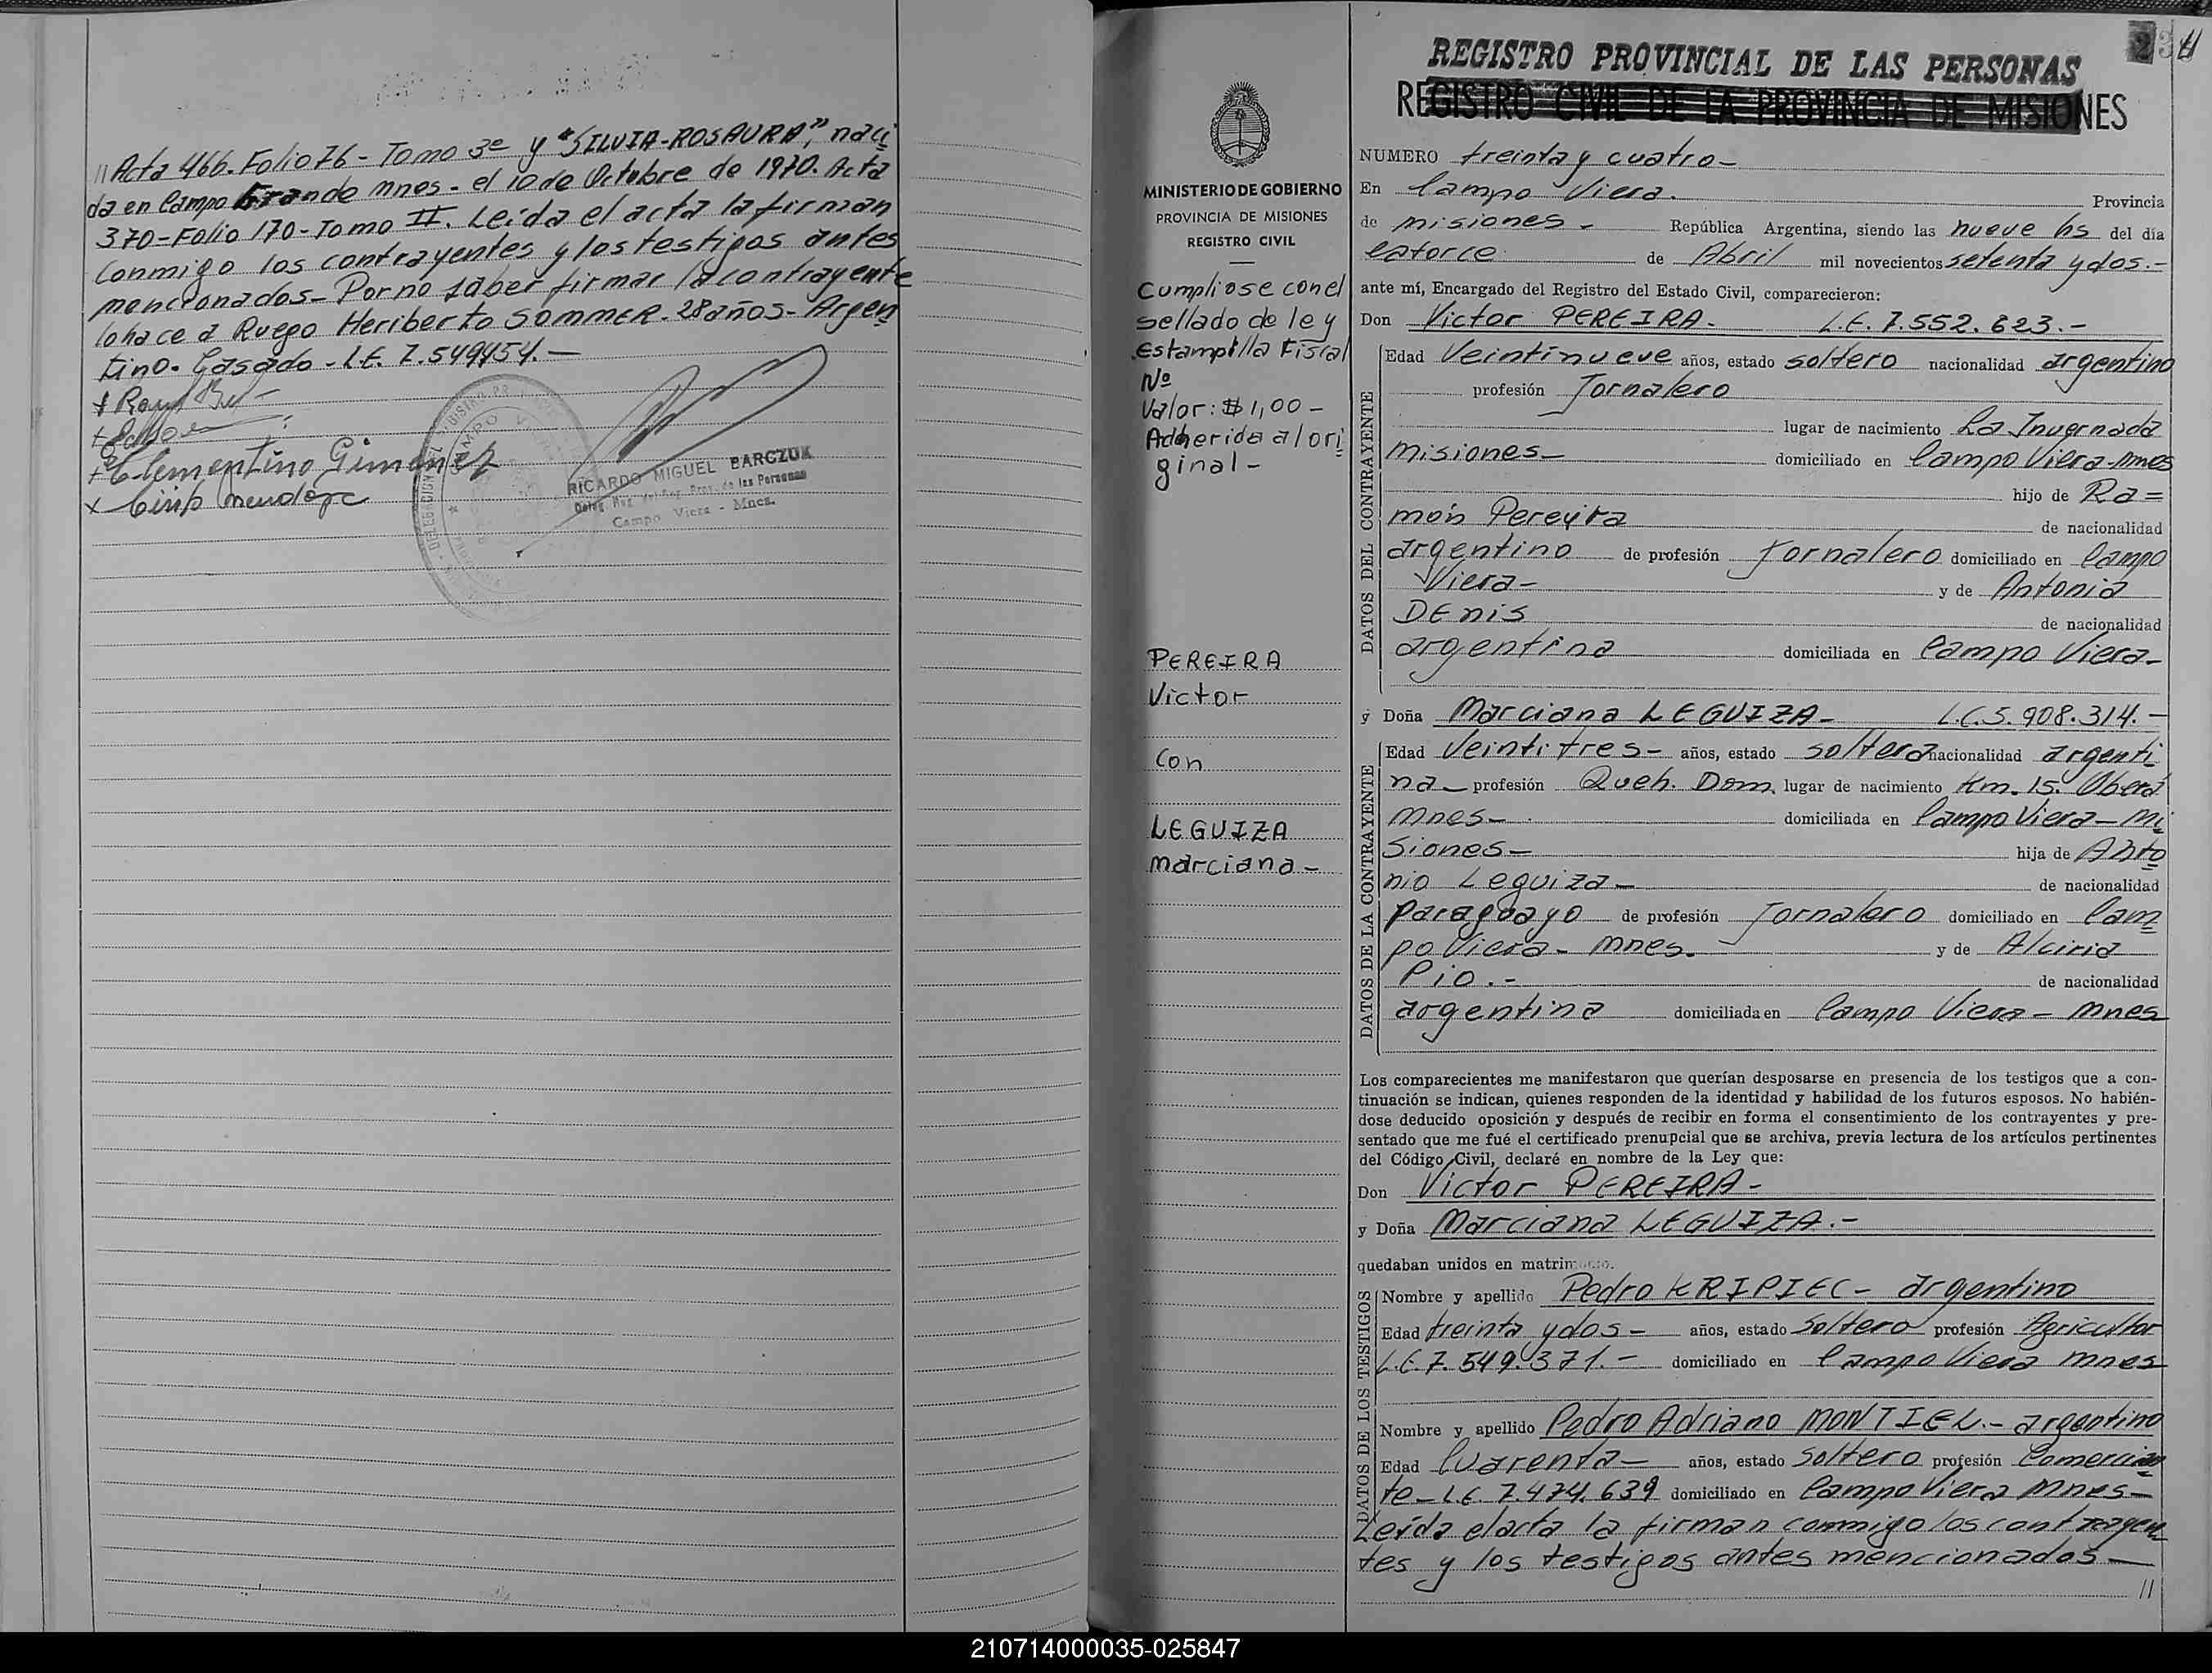 // Acta 466. Folio 76 - Tomo 3º y "SILVIA-ROSAURA", naci
da en Campo Grande Mnes - el 10 de Octubre de 1970. Acta
370 - Folio 170 - Tomo II. Leída el acta la firman
conmigo los contrayentes y los testigos antes
mencionados - Por no saber firmar la contrayente
lo hace a Ruego Heriberto SOMMER - 28 años - Argen
tino - Casado - L.E. 7.549.454. -
Clementino Gimenez
Mendoza
CAMPO V
RICARDO MIGUEL BARCZUK
Deleg. Reg. del Reg. Prov. de las Personas
Campo Viera - Mnes.
MINISTERIO DE GOBIERNO
PROVINCIA DE MISIONES
REGISTRO CIVIL
Cumpliose con el
sellado de ley
Estampilla Fiscal
Nº
Valor: $ 1,00 -
Adherida al ori
ginal -
PEREIRA
Victor
Con
LEGUIZA
Marciana -
REGISTRO PROVINCIAL DE LAS PERSONAS
REGISTRO CIVIL DE LA PROVINCIA DE MISIONES
NUMERO treinta y cuatro -
En Campo Viera. Provincia
de Misiones - República Argentina, siendo las nueve hs del día
catorce de Abril mil novecientos setenta y dos. -
ante mí, Encargado del Registro del Estado Civil, comparecieron:
Don Victor PEREIRA - L.E. 7.552.623. -
DATOS DEL CONTRAYENTE
Edad Veintinueve años, estado soltero nacionalidad argentino
profesión Jornalero
lugar de nacimiento La Invernada
Misiones - domiciliado en Campo Viera - Mnes
hijo de Ra=
món Pereyra de nacionalidad
argentino de profesión Jornalero domiciliado en Campo
Viera - y de Antonia
DEnis de nacionalidad
argentina domiciliada en Campo Viera -
y Doña Marciana LEGUIZA - L.C. 5.908.314. -
DATOS DE LA CONTRAYENTE
Edad Veintitres - años, estado soltera nacionalidad argenti
na - profesión Queh. Dom. lugar de nacimiento Km. 15. Oberá
Mnes - domiciliada en Campo Viera - Mi
siones - hija de Anto
nio Leguiza - de nacionalidad
paraguayo de profesión Jornalero domiciliado en Cam
po Viera - Mnes. y de Alciria
Pio. - de nacionalidad
argentina domiciliada en Campo Viera - Mnes
Los comparecientes me manifestaron que querían desposarse en presencia de los testigos que a con-
tinuación se indican, quienes responden de la identidad y habilidad de los futuros esposos. No habién-
dose deducido oposición y después de recibir en forma el consentimiento de los contrayentes y pre-
sentado que me fué el certificado prenupcial que se archiva, previa lectura de los artículos pertinentes
del Código Civil, declaré en nombre de la Ley que:
Don Victor PEREIRA -
y Doña Marciana LEGUIZA. -
quedaban unidos en matrimonio.
DATOS DE LOS TESTIGOS
Nombre y apellido Pedro KRIPIEC - argentino
Edad treinta y dos - años, estado Soltero profesión Agricultor
L.E. 7.549.371. - domiciliado en Campo Viera Mnes
Nombre y apellido Pedro Adriano MONTIEL. - argentino
Edad Cuarenta - años, estado Soltero profesión Comercian
te - L.E. 7.474.639 domiciliado en Campo Viera Mnes -
Leída el acta la firman conmigo los contrayen
tes y los testigos antes mencionados -
//
210714000035-025847